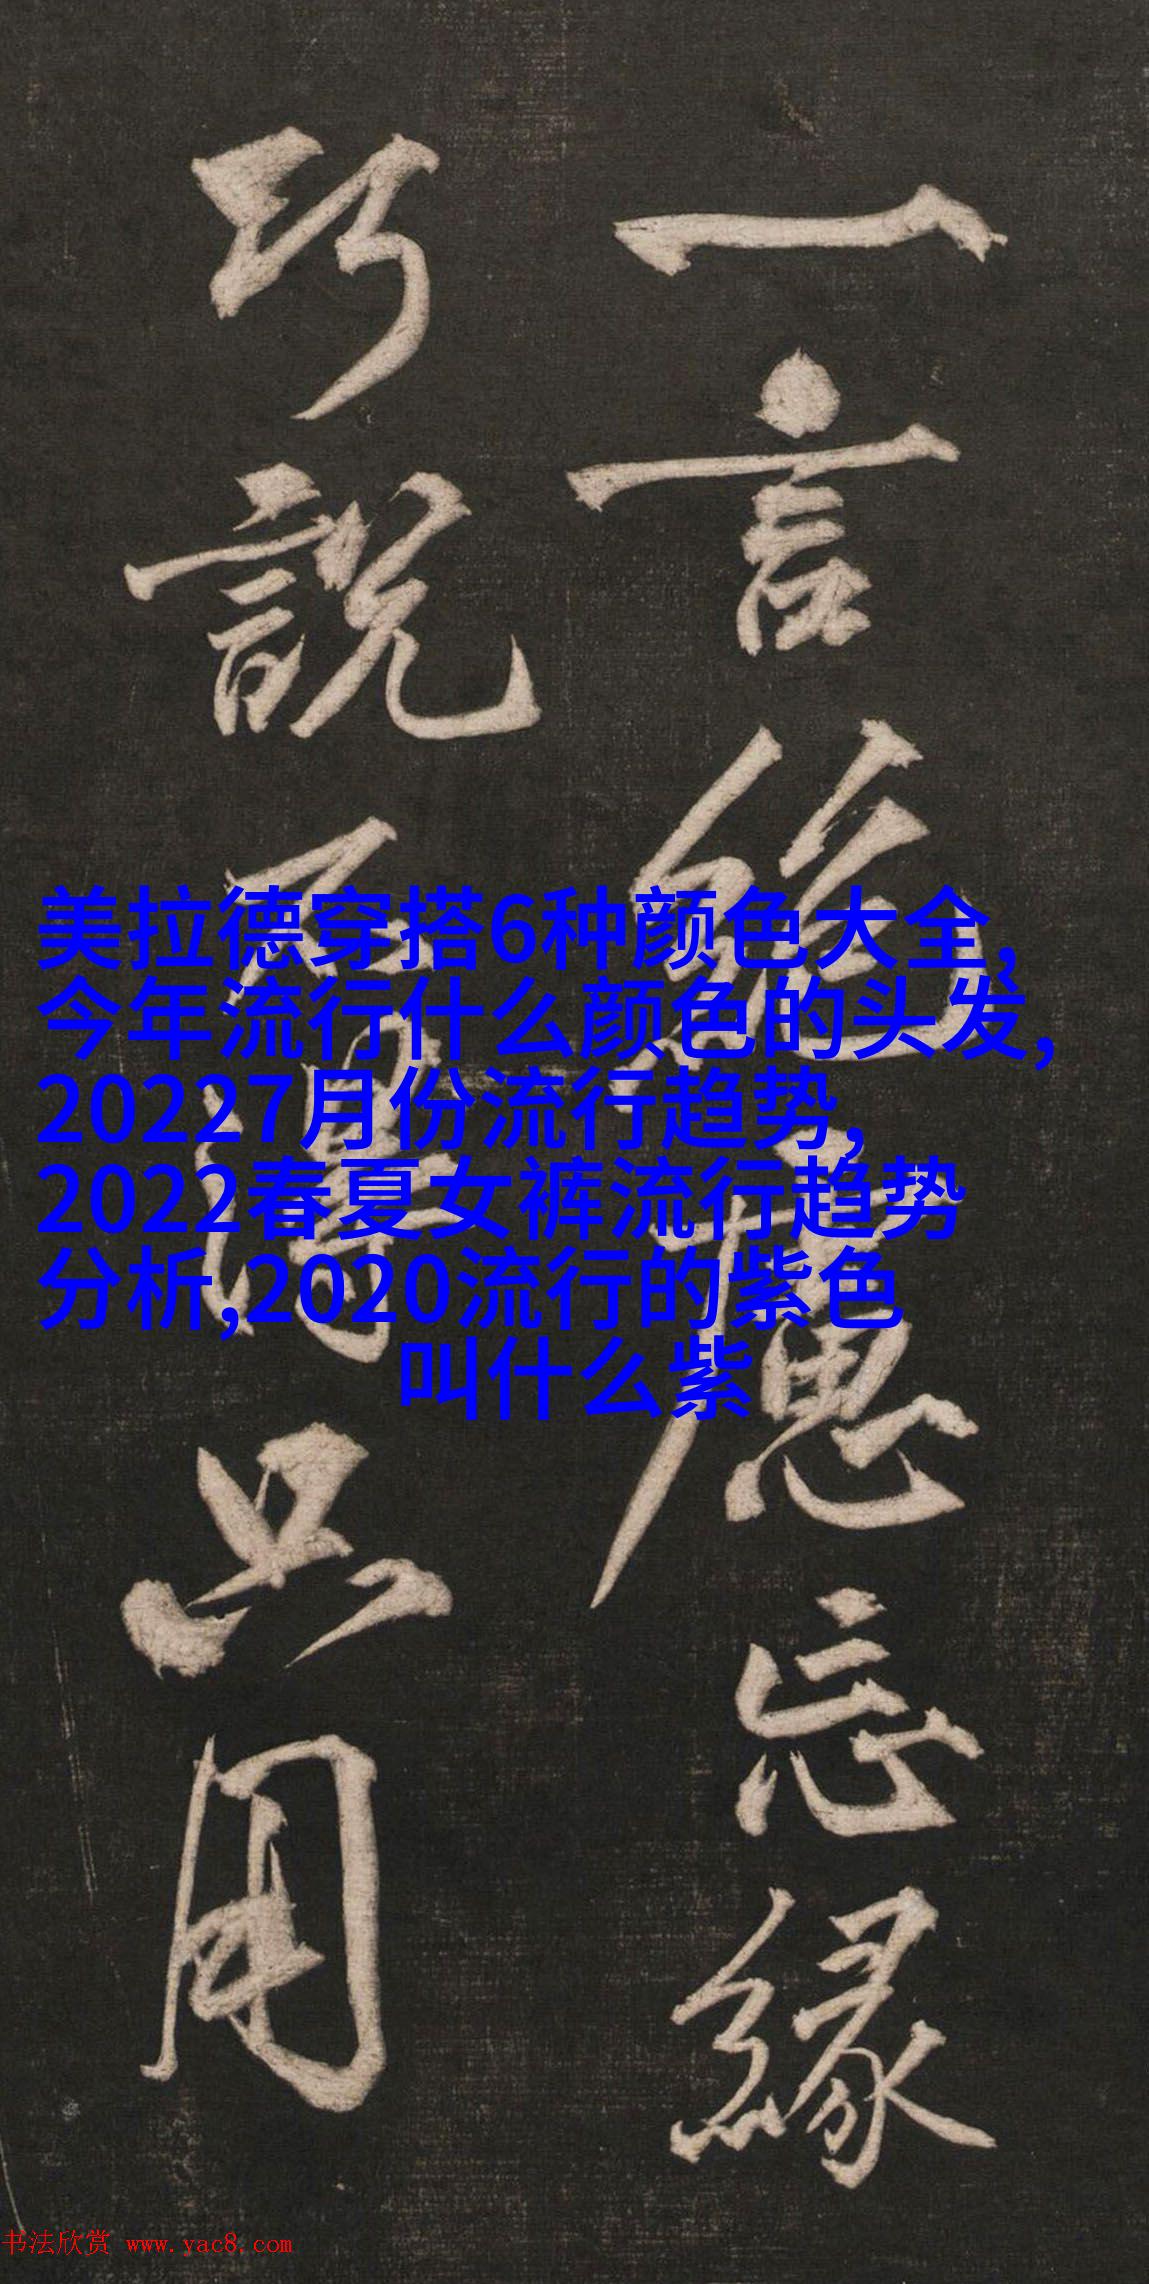 一言絕慮忘緣
巧說不得只用
美拉德穿搭6种颜色大全,
今年流行什么颜色的头发,
20227月份流行趋势,
2022春夏女裤流行趋势
分析,2020流行的紫色
叫什么紫
书法欣赏 www.yac8.com